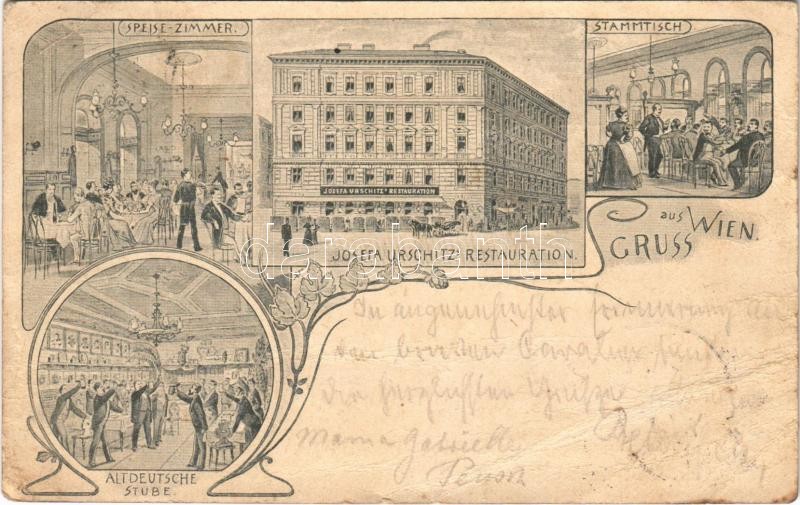 SPEISE-ZIMMER.
STAMMTISCH
JOSEFA URSCHITZ' RESTAURATION
JOSEFA URSCHITZ' RESTAURATION.
GRUSS aus WIEN.
ALTDEUTSCHE
STUBE.
darabanth
In angenehmster Erinnerung an
den Cavalier
die herzlichsten Grüße
Mama Gabrielle